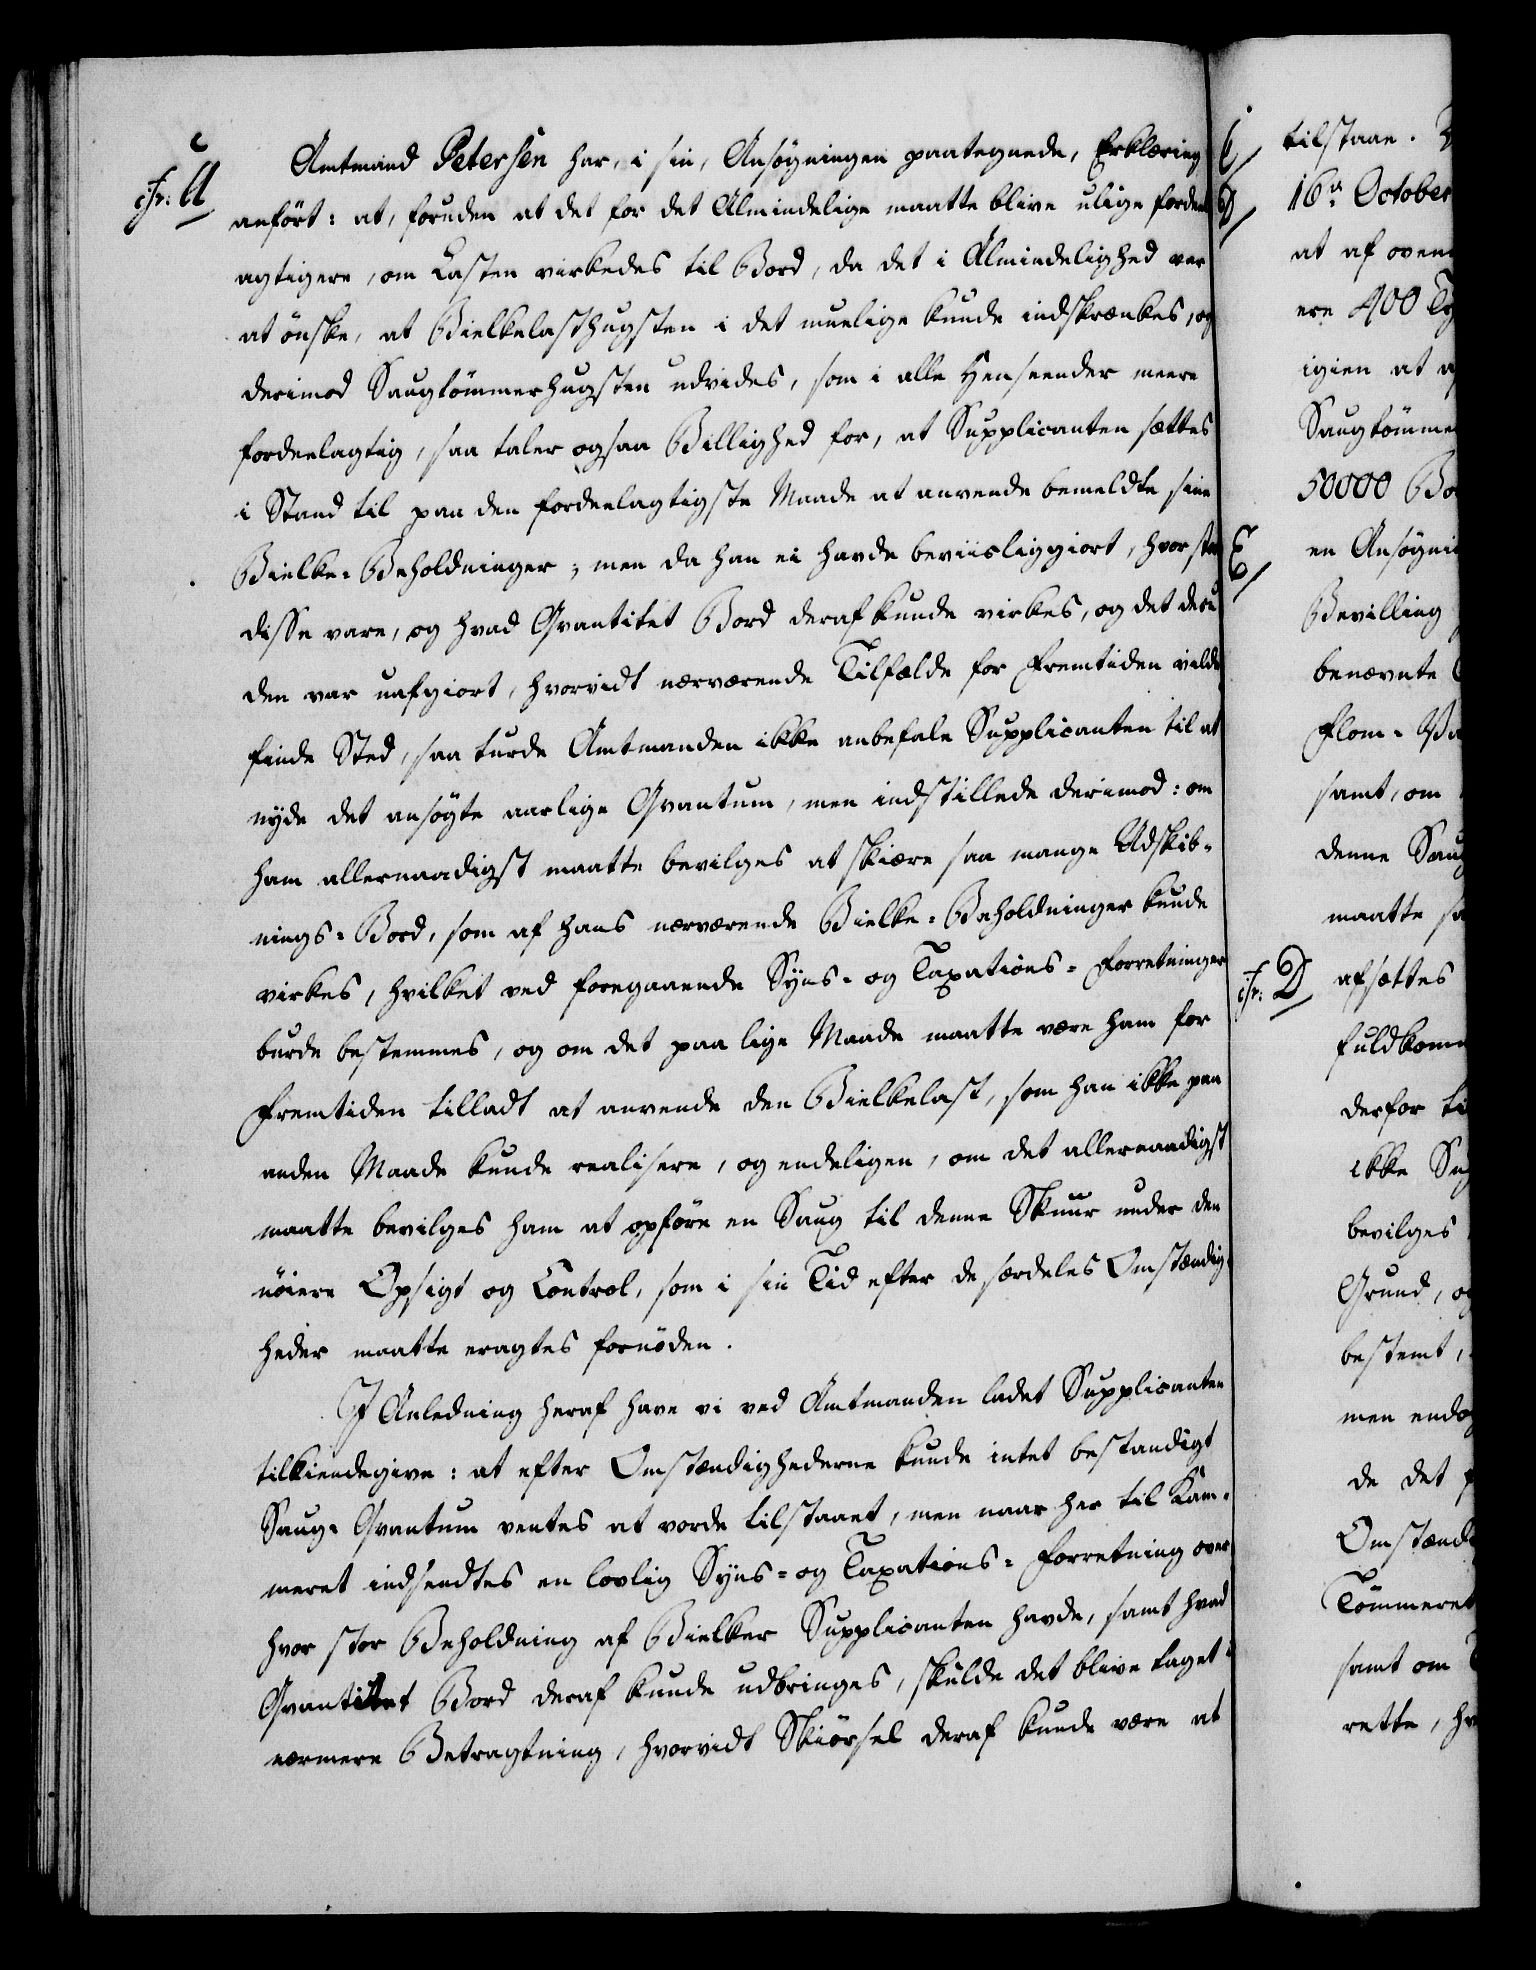 cfr: A
Amtmand Petersen har, i sin, Ansøgningen paategnede, Erklæring
anført: at, foruden at det for det Almindelige maatte blive ulige fordeel
agtigere, om Lasten virkedes til Bord, da det i Almindelighed var
at ønske, at Bielkelasthugsten i det muelige kunde indskrænkes, og
derimod Saugtømmerhugsten udvides, som i alle Henseender meere
fordeelagtig, saa taler ogsaa Billighed for, at Supplicanten sættes
i Stand til paa den fordeelagtigste Maade at anvende bemeldte sine
Bielke-Beholdninger; men da han ei havde beviisliggiort, hvor store
disse vare, og hvad Qvantitet Bord deraf kunde virkes, og det desu
den var uafgiort, hvorvidt nærværende Tilfælde for Fremtiden vilde
finde Sted, saa turde Amtmanden ikke anbefale Supplicanten til at
nyde det ansøgte aarlige Qvantum, men indstillede derimod: om
ham allernaadigst maatte bevilges at skiære saa mange Udskib-
nings-Bord, som af hans nærværende Bielke-Beholdninger kunde
virkes, hvilket ved foregaaende Syns- og Taxations-Forretninger
burde bestemmes, og om det paa lige Maade maatte være ham for
Fremtiden tilladt at anvende den Bielkelast, som han ikke paa
anden Maade kunde realisere, og endeligen, om det allernaadigst
maatte bevilges ham at opføre en Saug til denne Skuur under den
nøiere Opsigt og Control, som i sin Tid efter de særdeles Omstændig-
heder maatte eragtes fornøden.
I Anledning heraf have vi ved Amtmanden ladet Supplicanten
tilkiendegive: at efter Omstændighederne kunde intet bestandigt
Saug-Qvantum ventes at vorde tilstaaet, men naar her til Kam-
meret indsendtes en lovlig Syns- og Taxations-Forretning over
hvor stor Beholdning af Bielker Supplicanten havde, samt hvad
Qvantitet Bord deraf kunde udbringes, skulde det blive taget i
nærmere Betragtning, hvorvidt Skiørsel deraf kunde være at
tilstaae.
16de October
at af oven
ere 400 Ty
igien at
Saugtømme
50000 Bo
en Ansøgni
Bevilling
benævnte
Flom-Va
samt, om
denne Saug
maatte
cfr: D
afsættes
fuldkomm
derfor ti
ikke
bevilges
Grund, og
bestemt,
men endog
de det
Omstænd
Tømmeret
samt om
rette, hv